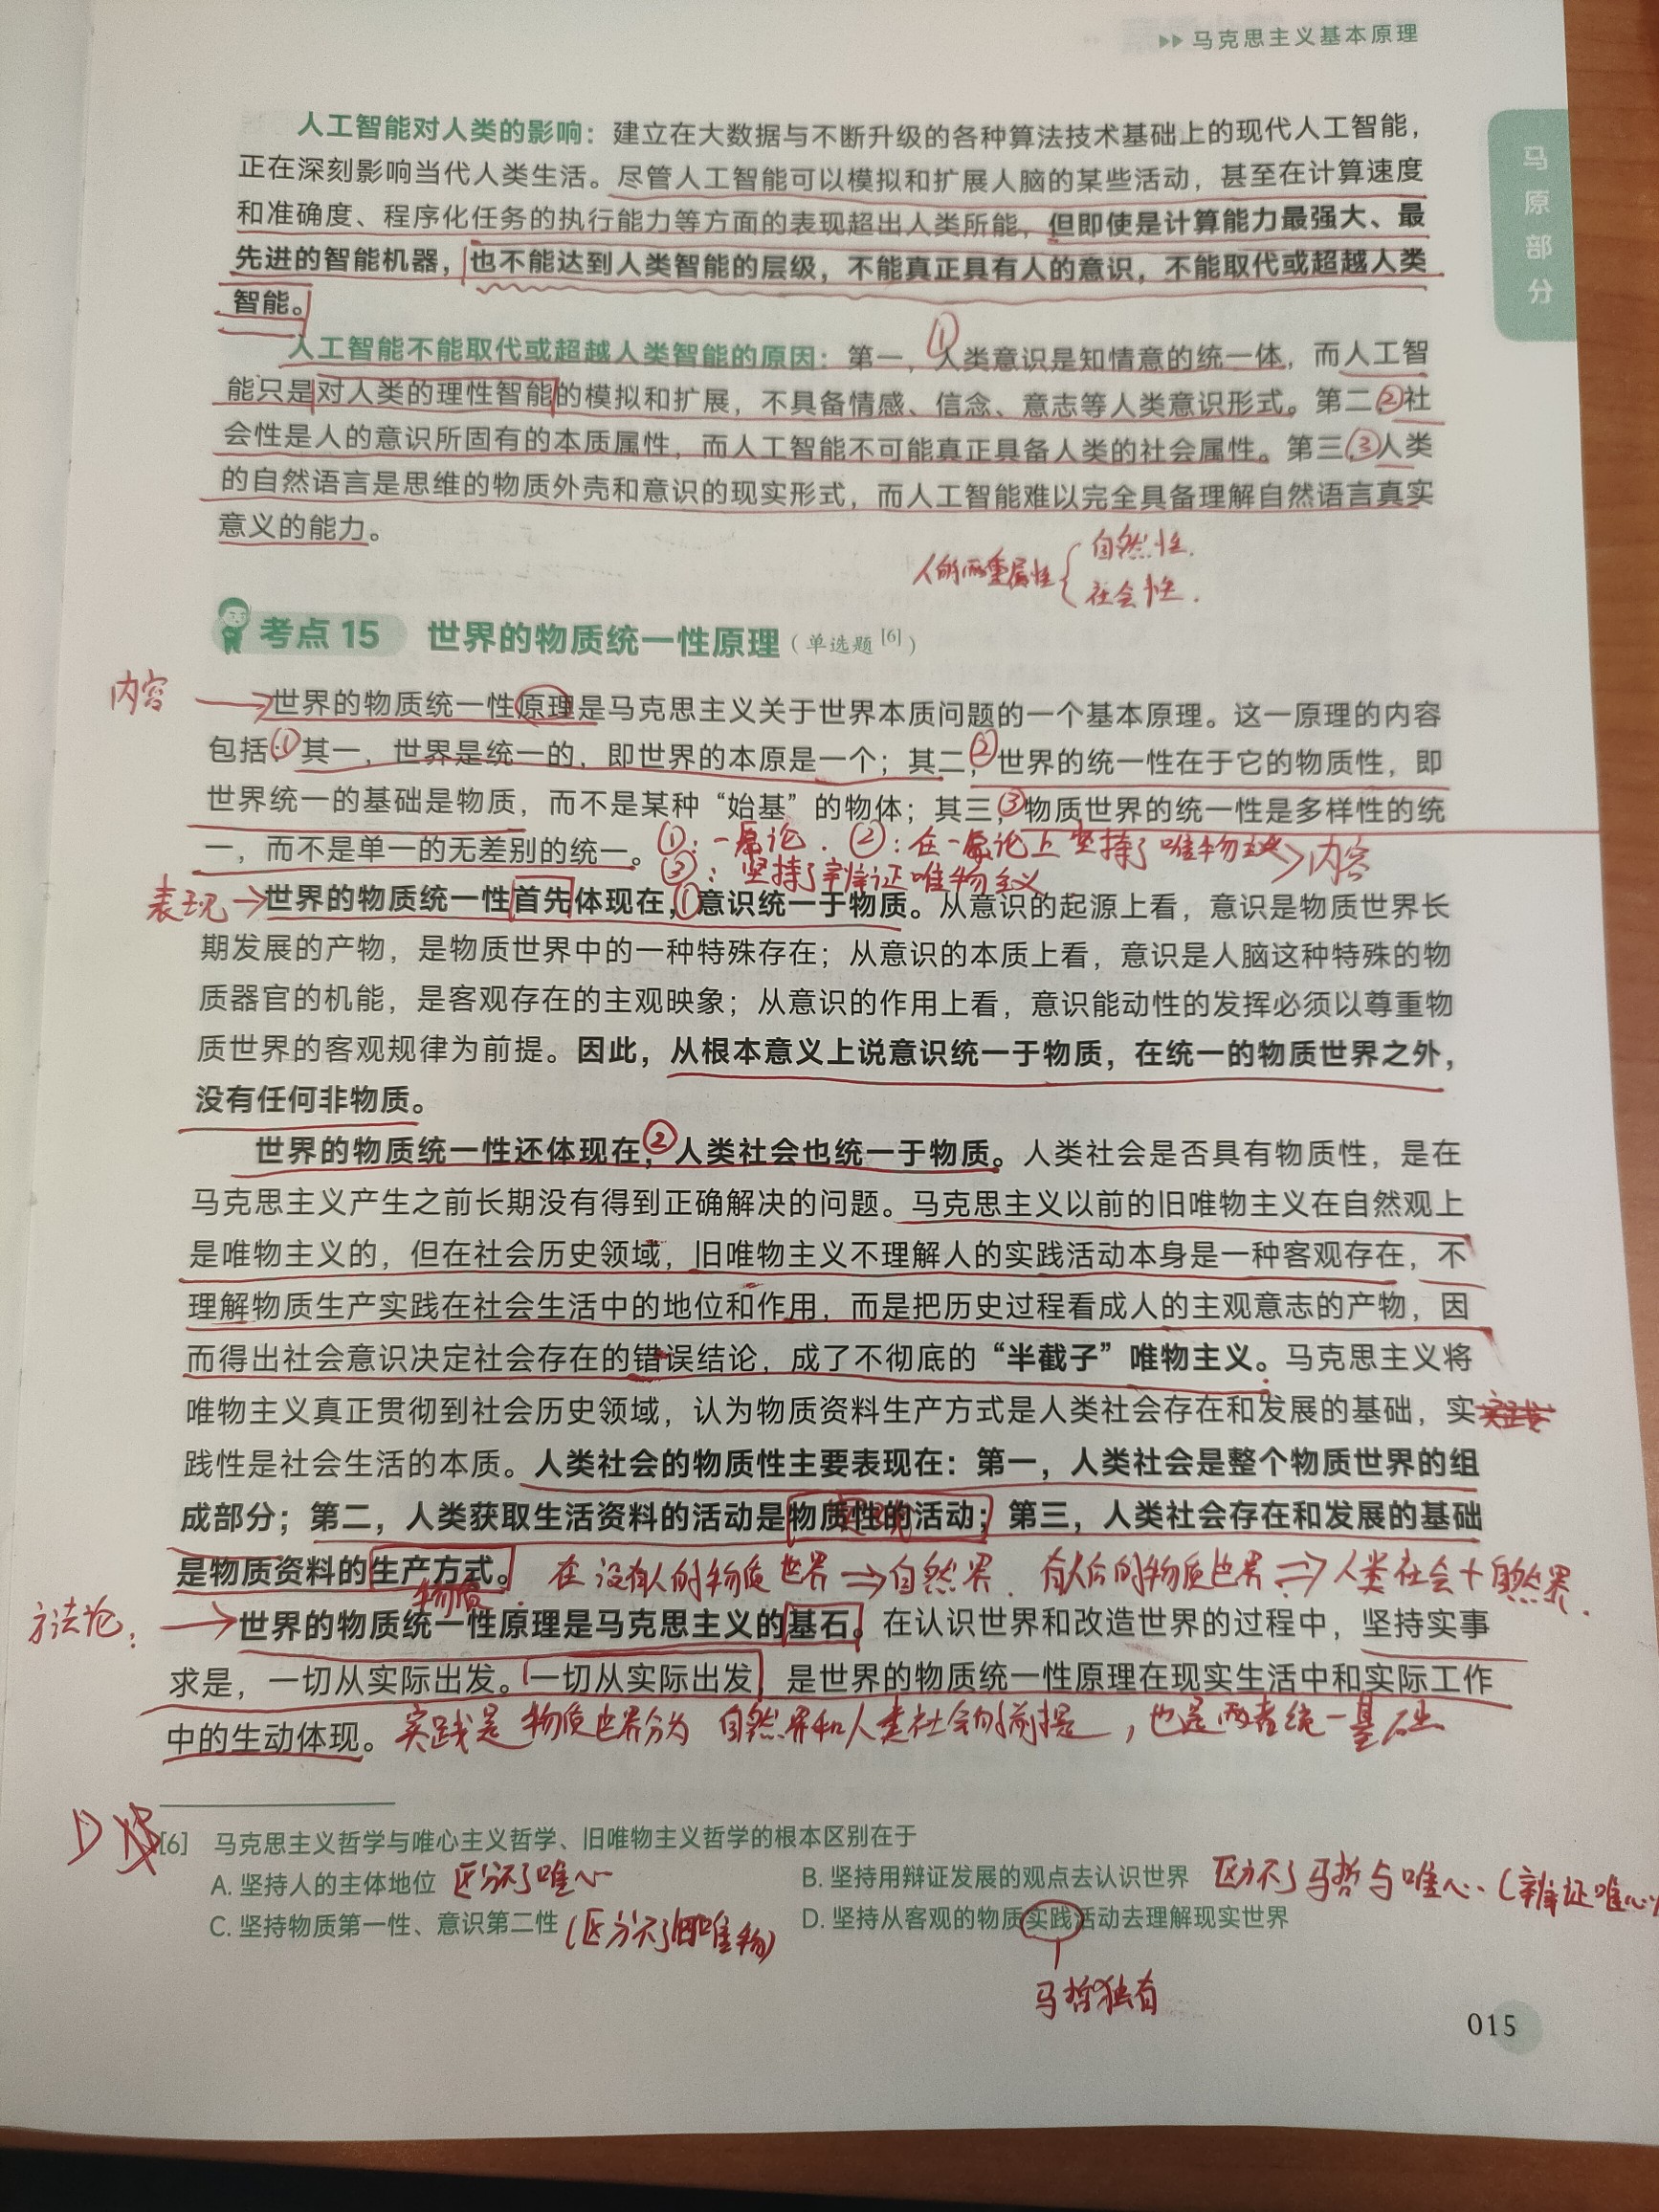 ▶▶ 马克思主义基本原理
马原部分
人工智能对人类的影响：建立在大数据与不断升级的各种算法技术基础上的现代人工智能，
正在深刻影响当代人类生活。尽管人工智能可以模拟和扩展人脑的某些活动，甚至在计算速度
和准确度、程序化任务的执行能力等方面的表现超出人类所能，但即使是计算能力最强大、最
先进的智能机器，也不能达到人类智能的层级，不能真正具有人的意识，不能取代或超越人类
智能。
①
人工智能不能取代或超越人类智能的原因：第一，人类意识是知情意的统一体，而人工智
能只是对人类的理性智能的模拟和扩展，不具备情感、信念、意志等人类意识形式。第二，②社
会性是人的意识所固有的本质属性，而人工智能不可能真正具备人类的社会属性。第三，③人类
的自然语言是思维的物质外壳和意识的现实形式，而人工智能难以完全具备理解自然语言真实
意义的能力。
人的两重属性 { 自然性.
社会性.
考点 15 世界的物质统一性原理（单选题[6]）
内容 → 世界的物质统一性原理是马克思主义关于世界本质问题的一个基本原理。这一原理的内容
包括：①其一，世界是统一的，即世界的本原是一个；其二，②世界的统一性在于它的物质性，即
世界统一的基础是物质，而不是某种“始基”的物体；其三，③物质世界的统一性是多样性的统
一，而不是单一的无差别的统一。①：一元论. ②：在一元论上坚持了唯物主义 > 内容
③：坚持了辩证唯物主义
表现 → 世界的物质统一性首先体现在，①意识统一于物质。从意识的起源上看，意识是物质世界长
期发展的产物，是物质世界中的一种特殊存在；从意识的本质上看，意识是人脑这种特殊的物
质器官的机能，是客观存在的主观映象；从意识的作用上看，意识能动性的发挥必须以尊重物
质世界的客观规律为前提。因此，从根本意义上说意识统一于物质，在统一的物质世界之外，
没有任何非物质。
世界的物质统一性还体现在，②人类社会也统一于物质。人类社会是否具有物质性，是在
马克思主义产生之前长期没有得到正确解决的问题。马克思主义以前的旧唯物主义在自然观上
是唯物主义的，但在社会历史领域，旧唯物主义不理解人的实践活动本身是一种客观存在，不
理解物质生产实践在社会生活中的地位和作用，而是把历史过程看成人的主观意志的产物，因
而得出社会意识决定社会存在的错误结论，成了不彻底的“半截子”唯物主义。马克思主义将
唯物主义真正贯彻到社会历史领域，认为物质资料生产方式是人类社会存在和发展的基础，实
践性是社会生活的本质。人类社会的物质性主要表现在：第一，人类社会是整个物质世界的组
成部分；第二，人类获取生活资料的活动是物质性的活动；第三，人类社会存在和发展的基础
是物质资料的生产方式。 在没有人的物质世界⇒自然界. 有人后的物质世界⇒人类社会+自然界.
物质.
方法论： → 世界的物质统一性原理是马克思主义的基石。在认识世界和改造世界的过程中，坚持实事
求是，一切从实际出发。一切从实际出发，是世界的物质统一性原理在现实生活中和实际工作
中的生动体现。实践是物质世界分为自然界和人类社会的前提，也是两者统一基础
D
[6] 马克思主义哲学与唯心主义哲学、旧唯物主义哲学的根本区别在于
A. 坚持人的主体地位 区分不了唯心
B. 坚持用辩证发展的观点去认识世界 区分不了马哲与唯心.（辩证唯心）
C. 坚持物质第一性、意识第二性（区分不了旧唯物）
D. 坚持从客观的物质实践活动去理解现实世界
马哲独有
015